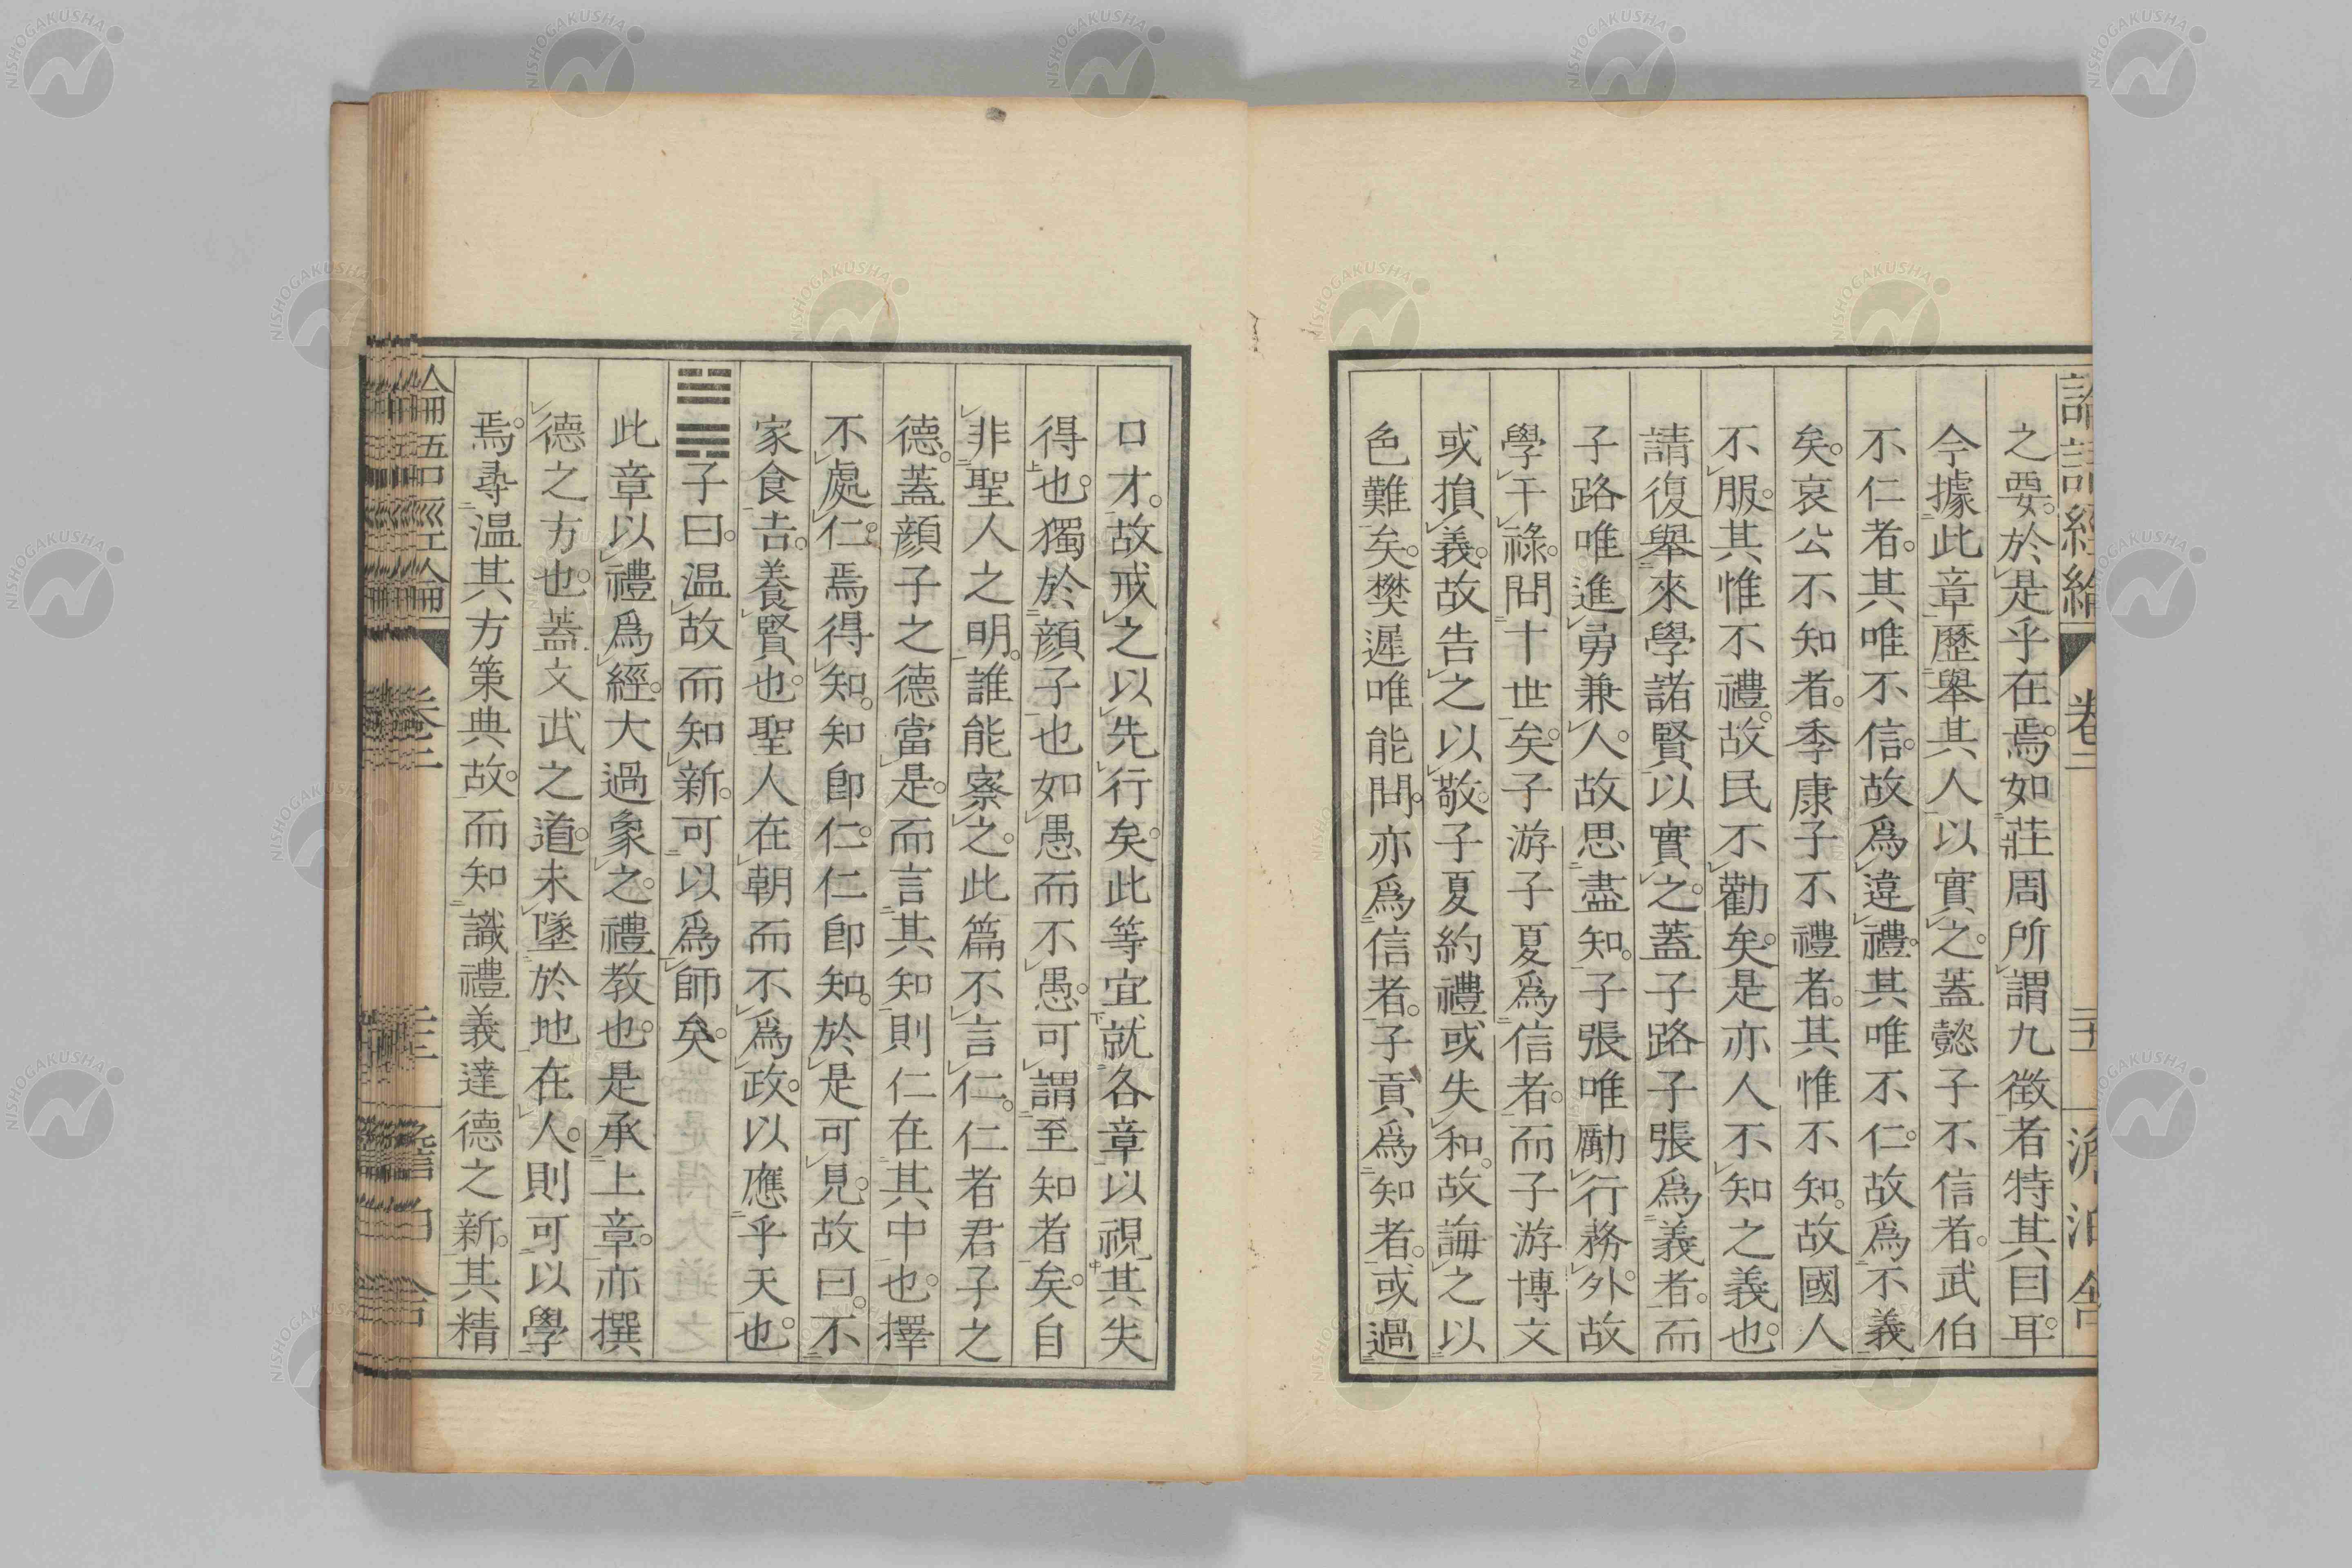 之要。於是乎在焉。如莊周所謂九徵者特其目耳。
今據此章歷舉其人以實之。蓋懿子不信者。武伯
不仁者。其唯不信。故爲違禮。其唯不仁。故爲不義
矣。哀公不知者。季康子不禮者。其惟不知。故國人
不服。其惟不禮。故民不勸矣。是亦人不知之義也。
請復舉來學諸賢以實之。蓋子路子張爲義者。而
子路唯進勇兼人。故思盡知。子張唯勵行務外。故
學干祿。問十世矣。子游子夏爲信者。而子游博文
或損義。故告之以敬。子夏約禮或失和。故誨之以
色難矣。樊遲唯能問。亦爲信者。子貢爲知者。或過
口才。故戒之以先行矣。此等宜就各章以視其失
得也。獨於顏子也如愚而不愚。可謂至知者矣。自
非聖人之明。誰能察之。此篇不言仁。仁者君子之
德。蓋顏子之德當是。而言其知則仁在其中也。擇
不處仁。焉得知。知卽仁。仁卽知。於是可見。故曰。不
家食吉。養賢也。聖人在朝而不爲政。以應乎天也。
子曰。温故而知新。可以爲師矣。
此章以禮爲經。大過象之。禮教也。是承上章。亦撰
德之方也。蓋文武之道。未墜於地在人。則可以學
焉。尋温其方策典故。而知識禮義達德之新。其精
論語經論 卷二
NISHOGAKUSHA